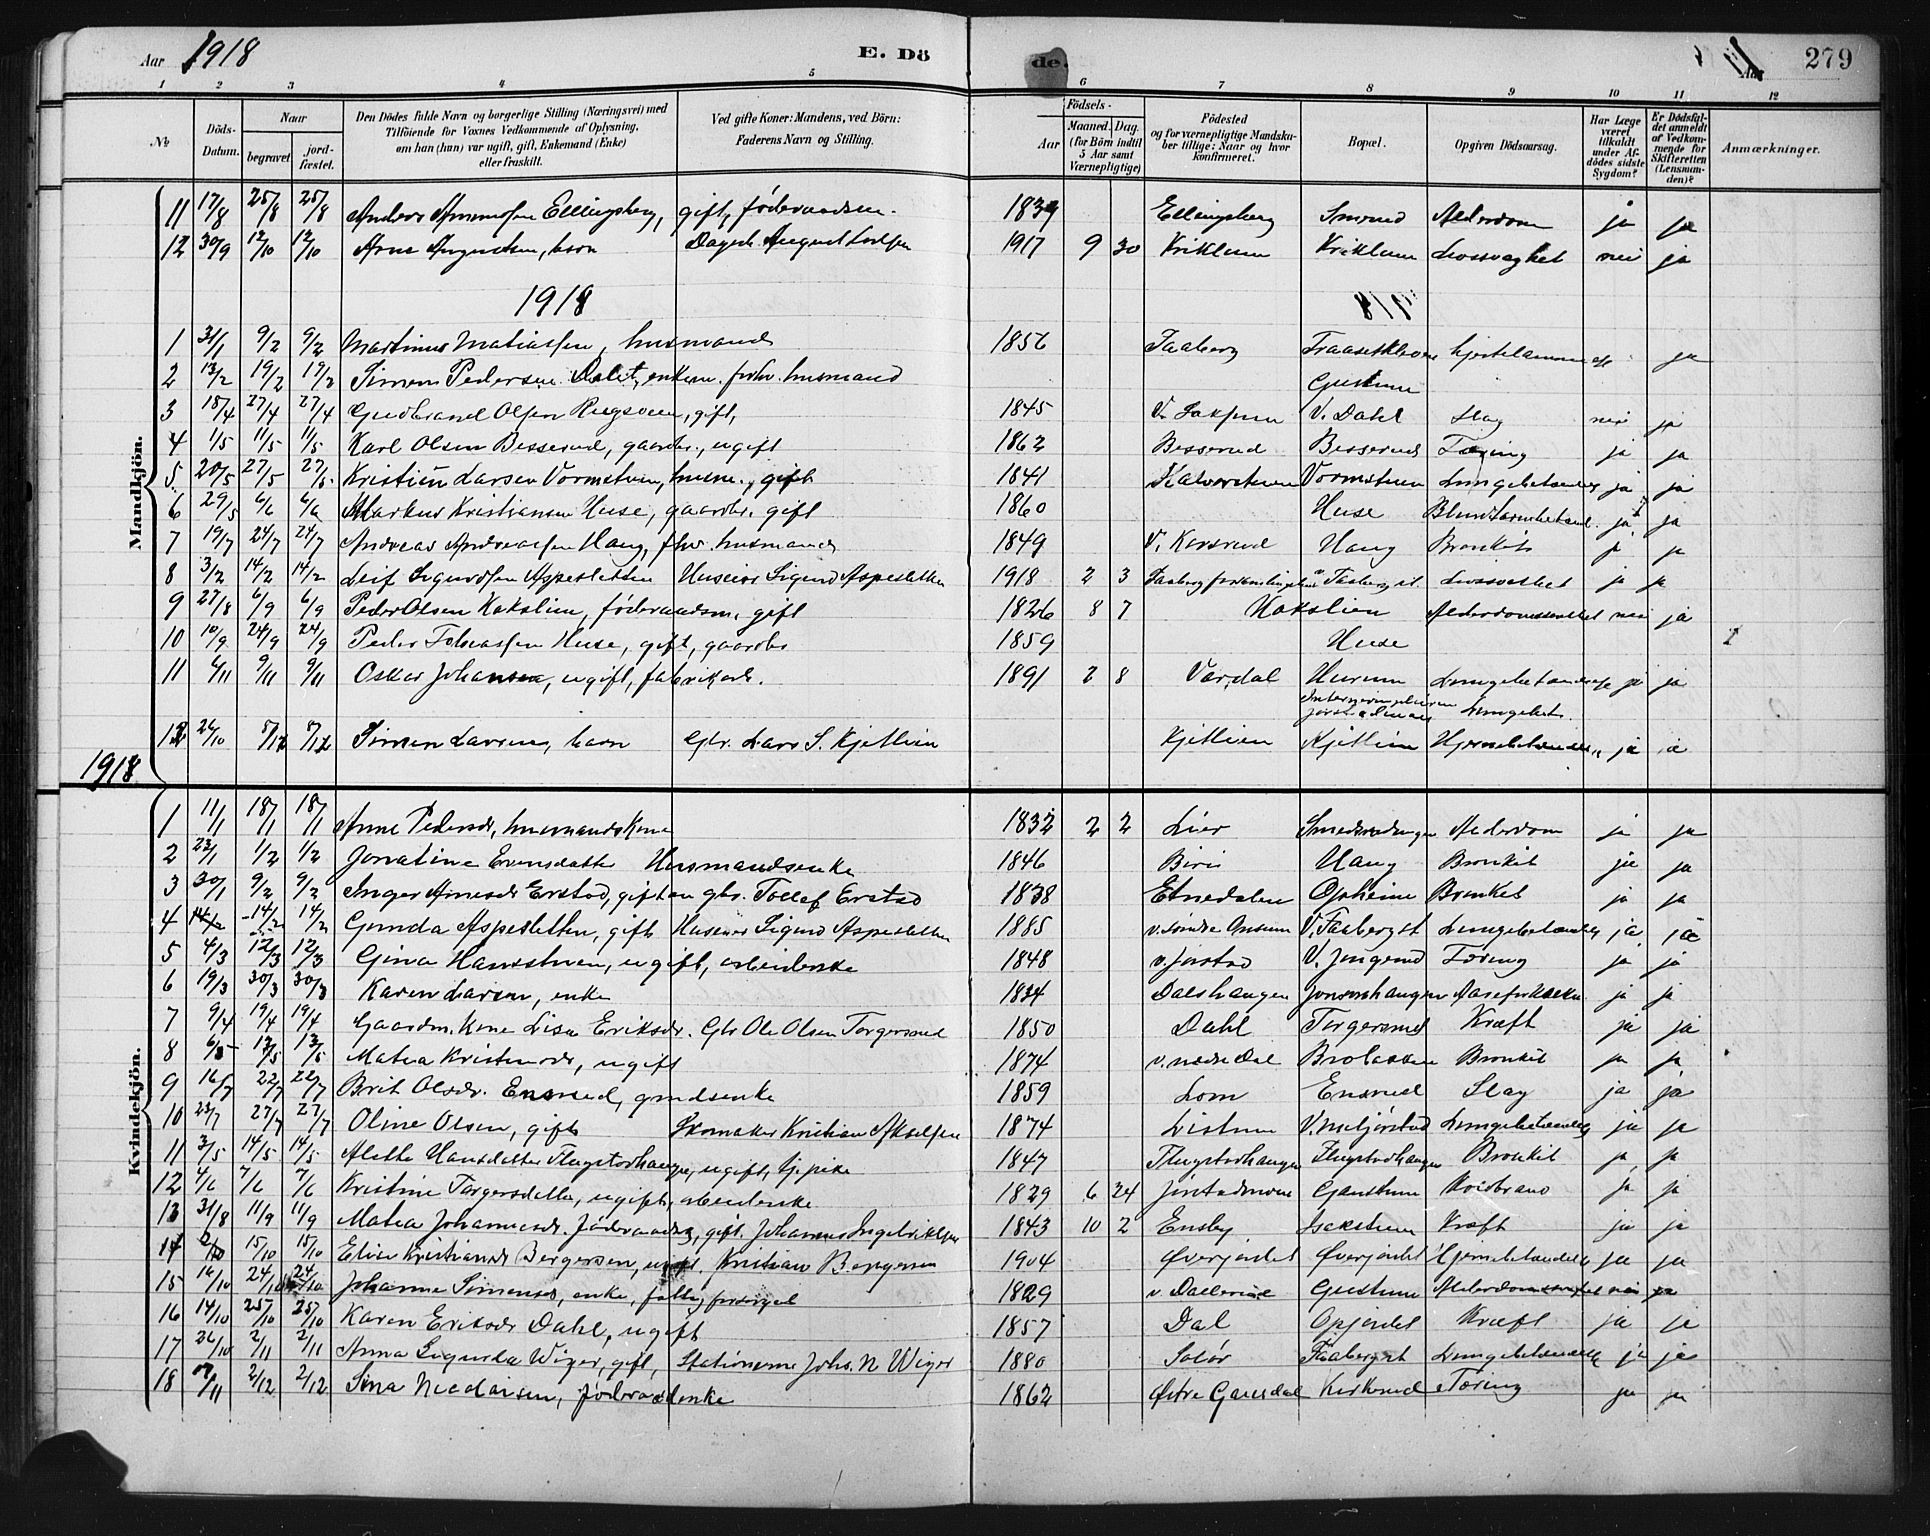 Aar 1918 E. Döde. Aar 279
1 2 3 4 5 6 7 8 9 10 11 12
No. Döds-Datum. Naar begravet. jordfæstet. Den Dödes fulde Navn og borgerlige Stilling (Næringsvei) med Tilföiende for Voxnes Vedkommende af Oplysning, om han (hun) var ugift, gift, Enkemand (Enke) eller fraskilt. Ved gifte Koner: Mandens, ved Börn: Faderens Navn og Stilling. Födsels- Aar Maaned. Dag. (for Börn indtil 5 Aar samt Værnepligtige) Födested og for værnepligtige Mandskaber tillige: Naar og hvor konfirmeret. Bopæl. Opgiven Dödsaarsag. Har Læge været tilkaldt under Afdödes sidste Sygdom? Er Dödsfaldet anmeldt af Vedkommende for Skifteretten (Lensmanden)? Anmærkninger.
Mandkjön.
11 17/8 25/8 25/8 Anders Ellingsberg, gift, föderaadsm. 1834 Ellingsberg Smrud Alderdom ja ja
12 30/9 12/10 12/10 Arne Augustsen, barn Dagarb. August 1917 9 30 Kriklum Kriklum Livssvaghet nei ja
1918
1 31/1 9/2 9/2 Martinus Matiassen, husmand 1856 Faaberg ja
2 13/2 19/2 19/2 Simen Pedersen Dalet, enkem. forhv. husmand Gustum
3 18/4 27/4 27/4 Gudbrand Olsen Rugsveen, gift, 1845 V. Dahl Slag nei ja
4 1/5 11/5 11/5 Karl Olsen Besserud, gaardbr., ugift 1862 Besserud Besserud Tæring ja ja
5 20/5 27/5 27/5 Kristian Larsen Vormstuen, husm., gift 1841 Kalverstuen Vormstuen Lungebetændels ja ja
6 29/5 6/6 6/6 Markus Kristiansen Huse, gaardbr. gift 1860 Huse Blindtarmbetænd. ja ja
7 19/7 24/7 24/7 Andreas Andreassen Haug, fhv. husmand 1849 V. Korsrud Haug Bronkit ja ja
8 3/2 14/2 14/2 Leif Sigurdsen Aspesletten Huseier Sigurd Aspesletten 1918 2 3 Faaberg Faaberg st. Livssvakhet ja ja
9 27/8 6/9 6/9 Peder Olsen Kokslien, föderaadsm. gift 1826 8 7 Kokslien nei ja
10 10/9 24/9 24/9 Peder Tobiassen Huse, gift, gaardbr 1859 Huse
11 6/11 9/11 9/11 Oskar Johansen, ugift, fabrikarb. 1891 2 8 Vardal Hurum Interneringsleiren Jørstadmoen Lungebetændelse ja ja
12 26/10 8/12 8/12 Simen Larsen, barn Gbr. Lars S. Kjetlien Kjetlien Kjetlien Hjernebetændels ja ja
1918
Kvindekjön.
1 11/1 18/1 18/1 Anne Pedersdr, husmandskone 1832 2 2 Lier Alderdom ja ja
2 23/1 1/2 1/2 Jonatine Evensdatter Husmandsenke 1846 Biri Haug Bronkit ja ja
3 30/1 9/2 9/2 Inger Arnesdr Erstad, gift m gbr. Tollef Erstad 1838 Etnedalen Opheim Bronkit ja ja
4 14/2 14/2 Gunda Aspesletten, gift Huseier Sigurd Aspesletten 1885 V. Faaberg st Lungebetændels ja ja
5 4/3 12/3 12/3 Gina Hansstuen, ugift, arbeiderske 1848 v. Jørstad V. Jungerud Tæring ja ja
6 19/3 30/3 30/3 Karen Larsen, enke 1834 Dalshaugen Jonsrudhaugen ja ja
7 9/4 19/4 19/4 Gaardm. kone Lisa Eriksdr. Gbr Ole Olsen Torgersrud 1850 Dahl Torgersrud Kræft ja ja
8 6/5 13/5 13/5 Matea Kristensdr, ugift 1874 v. nedre Dal Brobakken Bronkit ja ja
9 16/7 22/7 22/7 Brit Olsdr. Ensrud, grundsenke 1859 Lom Ensrud Slag ja ja
10 23/7 27/7 27/7 Oline Olsen, gift Skomaker Kristian Akselsen 1874 Listuen Lungebetændels ja ja
11 3/5 14/5 14/5 Alette Hansdatter Flugstadhaugen, ugift, tjpike 1847 Flugstadhaugen Flugstadhaugen Bronkit ja ja
12 4/6 7/6 7/6 Kristine Torgersdatter, ugift, arbeiderske 1829 6 24 Jørstadmoen Gaustuen Koldbrand ja ja
13 31/8 11/9 11/9 Matea Johannesdr. føderaads, gift. Johannes Ingebriktsen 1843 10 2 Ensby Isakstuen Kræft ja ja
14 2/10 15/10 15/10 Elise Kristiansdr Bergersen, ugift. Kristian Bergersen 1904 Øverjordet Øverjordet Hjernebetændels ja ja
15 16/10 24/10 24/10 Johanne Simensdr, enke, fattigforsørget 1829 v. Dallerud Gustum nei ja
16 14/10 25/10 25/10 Karen Eriksdr Dahl, ugift 1857 Dal Opjordet Kræft ja ja
17 26/10 2/11 2/11 Anna Sigurda Wiger, gift, Stationsm Johs. N Wiger 1880 Solør Faaberg st Lungebetændels ja ja
18 /11 2/12 2/12 Sina Nicolaisen, føderaadsenke 1862 Østre Gausdal Kirkerud Tæring ja ja